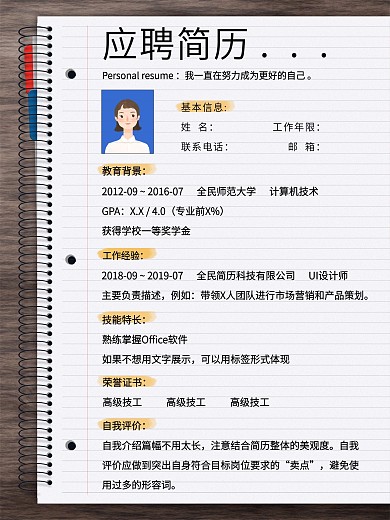 应聘简历...
Personal resume：我一直在努力成为更好的自己。
基本信息:
姓 名：  工作年限：
联系电话：  邮 箱：
教育背景：
2012-09 ~ 2016-07  全民师范大学  计算机技术
GPA：X.X / 4.0（专业前X%）
获得学校一等奖学金
工作经验：
2018-09 ~ 2019-07  全民简历科技有限公司  UI设计师
主要负责描述，例如：带领X人团队进行市场营销和产品策划。
技能特长：
熟练掌握Office软件
如果不想用文字展示，可以用标签形式体现
荣誉证书：
高级技工  高级技工  高级技工
自我评价：
自我介绍篇幅不用太长，注意结合简历整体的美观度。自我
评价应做到突出自身符合目标岗位要求的“卖点”，避免使
用过多的形容词。